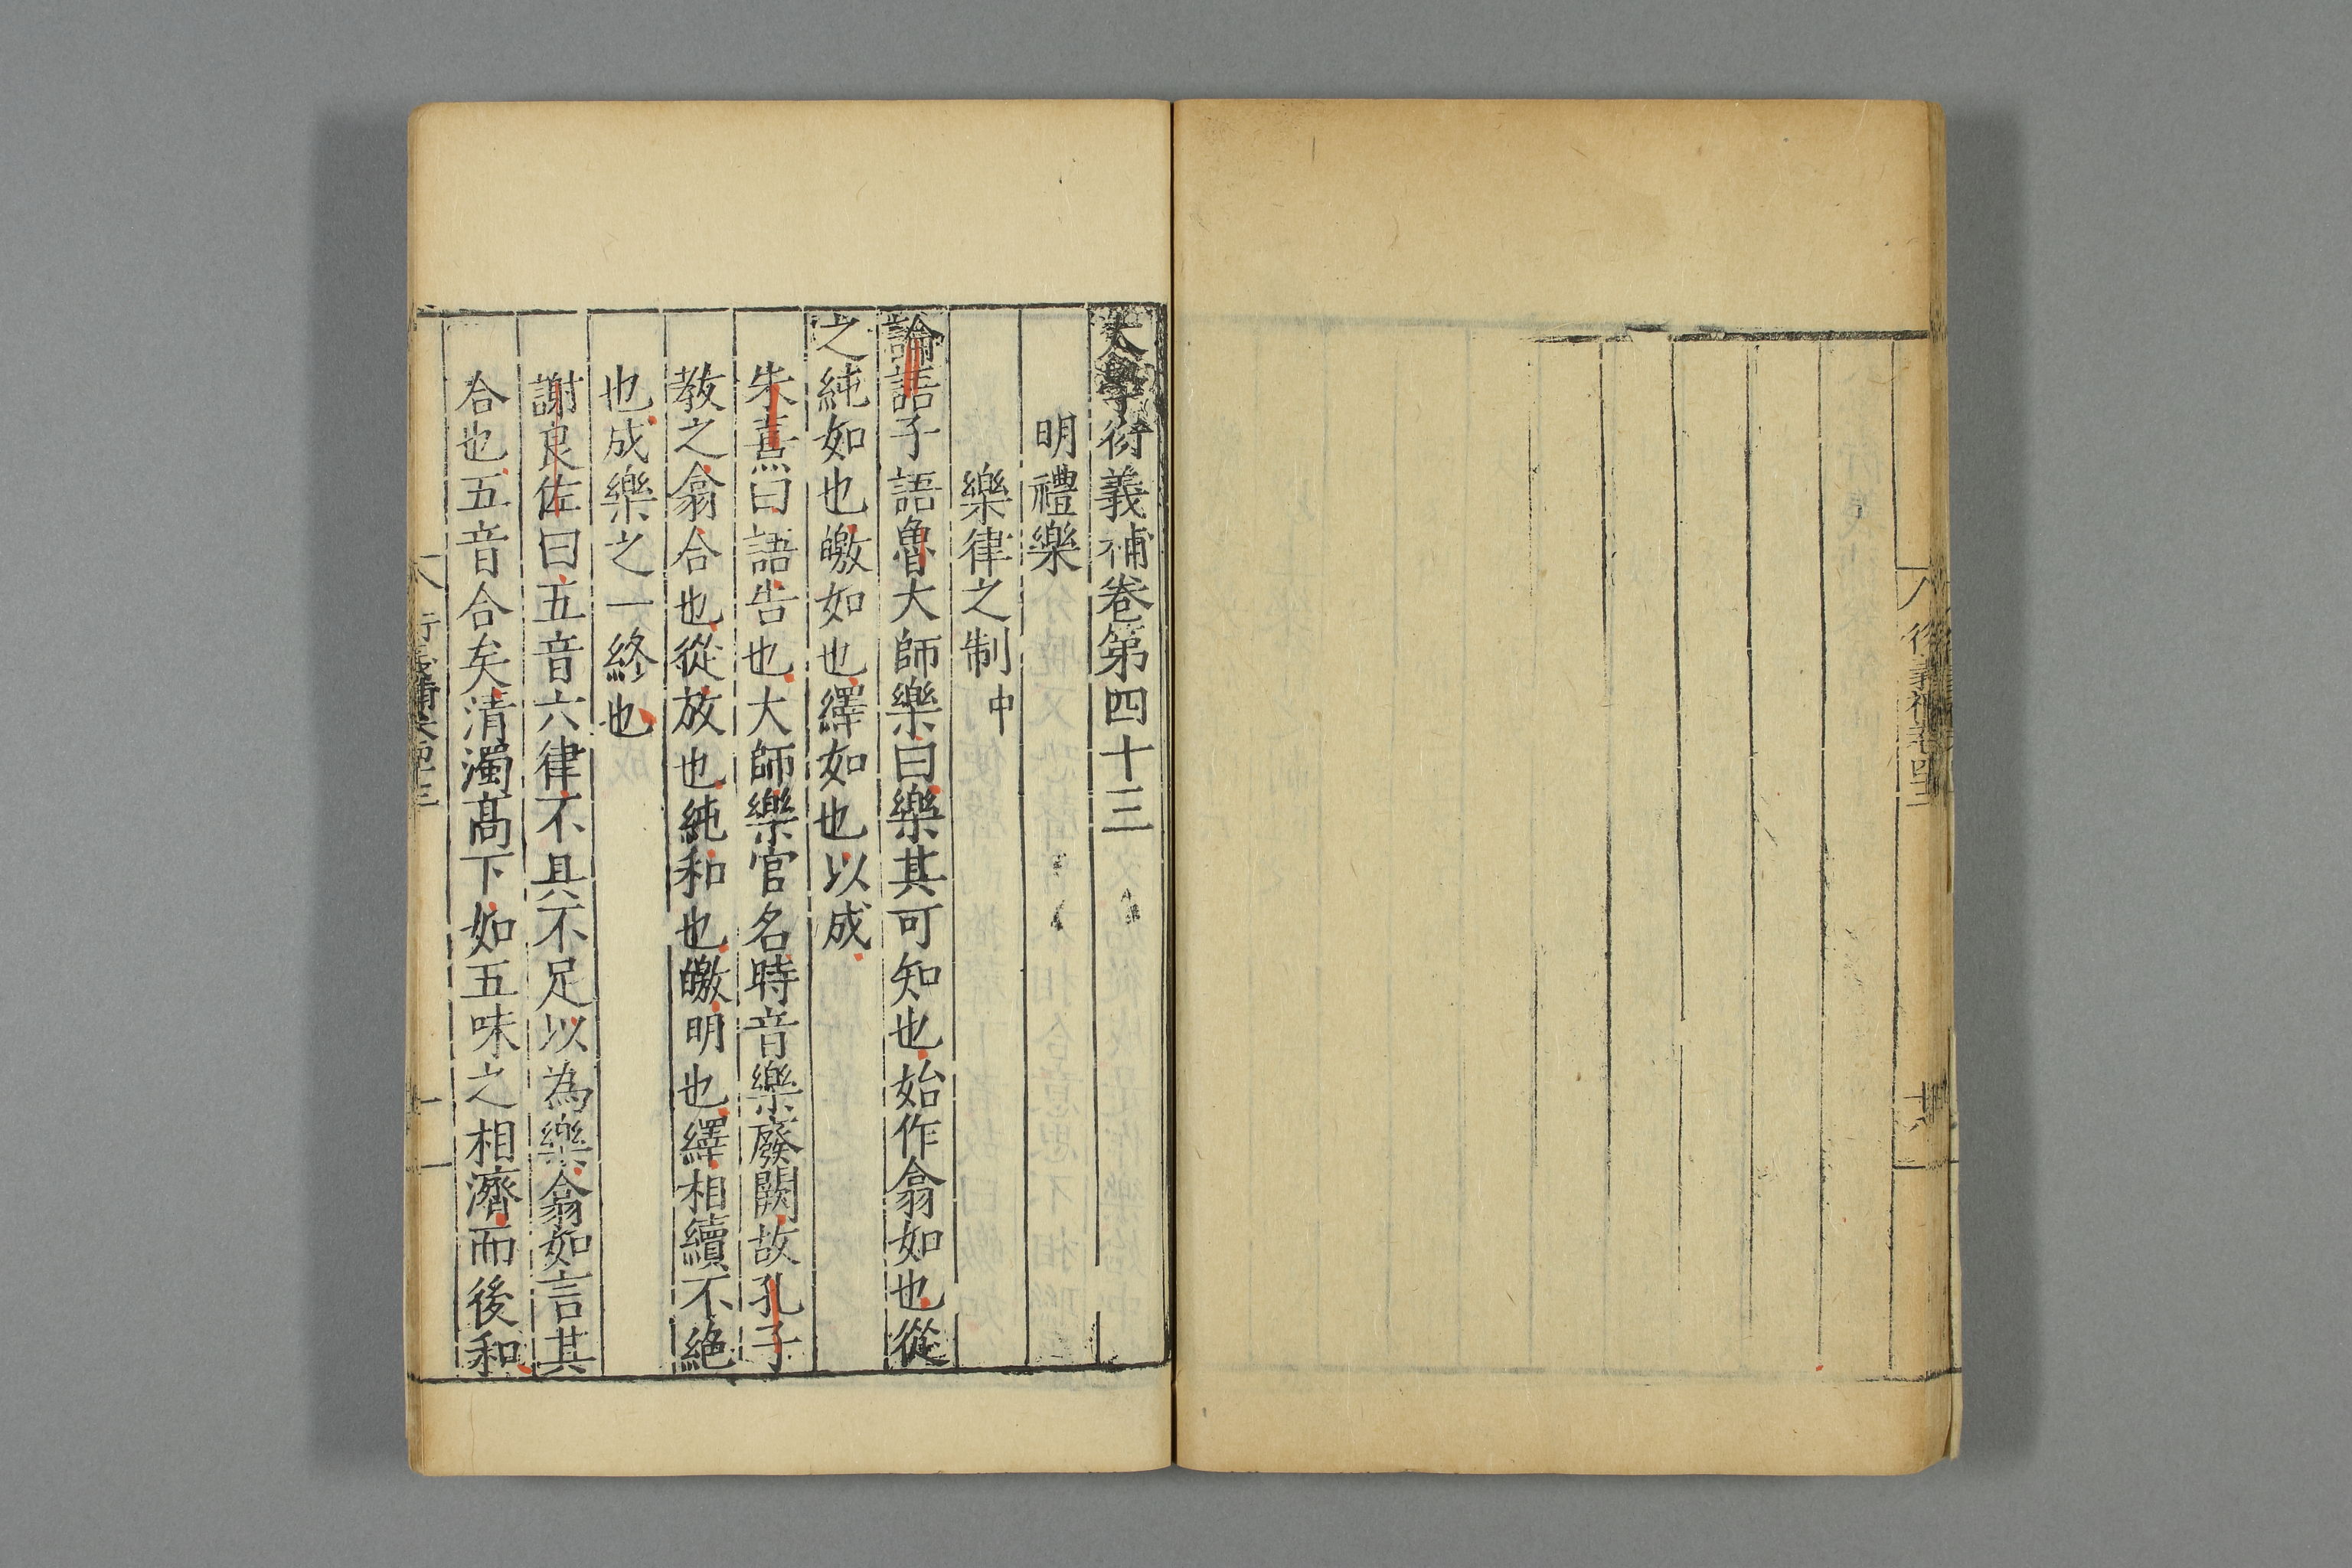 大學衍義補卷第四十三
明禮樂
樂律之制中
論語子語魯大師樂曰樂其可知也始作翕如也從
之純如也皦如也繹如也以成
朱熹曰語告也大師樂官名時音樂廢闕故孔子
教之翕合也從放也純和也皦明也繹相續不絕
也成樂之一終也
謝良佐曰五音六律不具不足以為樂翕如言其
合也五音合矣清濁高下如五味之相濟而後和